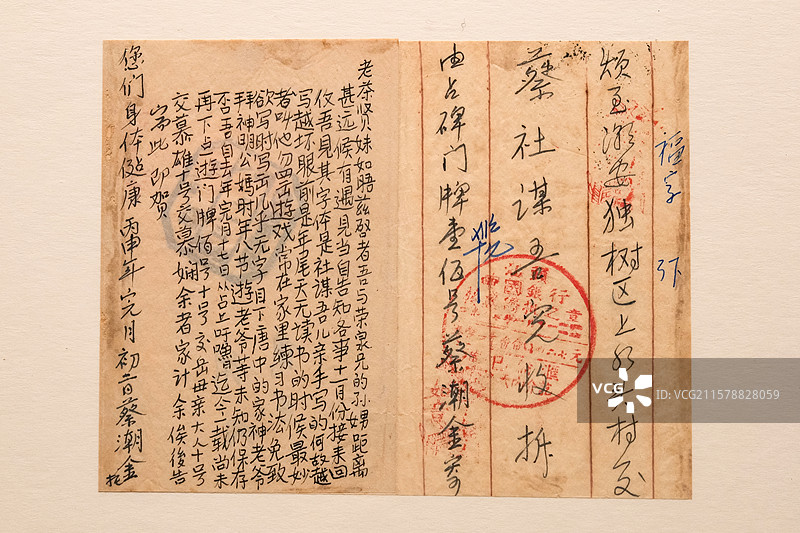 福字
烦至潮安独树区上
村交
蔡社谋吾儿收拆
由占碑门牌壹佰号蔡潮金寄
中國銀行
老蔡贤妹如晤兹启者吾与荣泉兄的孙媳距离
甚远候有遇见当自告知各事十一月份接来回
仪吾见其字体是社谋吾儿亲手写的何故越
写越坏眼前是年马尾天天读书的时候最妙
者叫他勿出游戏常在家里练习书法免致
欲写时写出几乎无字目下唐中的家神老爷
拜神明公妈时年八节游老爷等未知仍保存
否吾自去年元月十七日从占上吁噜迄今一载尚未
再下占游门牌佰号十号交岳母亲大人十号
交慕雄十号交慕娴余者家计余俟後告
耑此即贺
您们身体健康 丙申年元月初二日蔡潮金
托
VCG
VCG211578828059